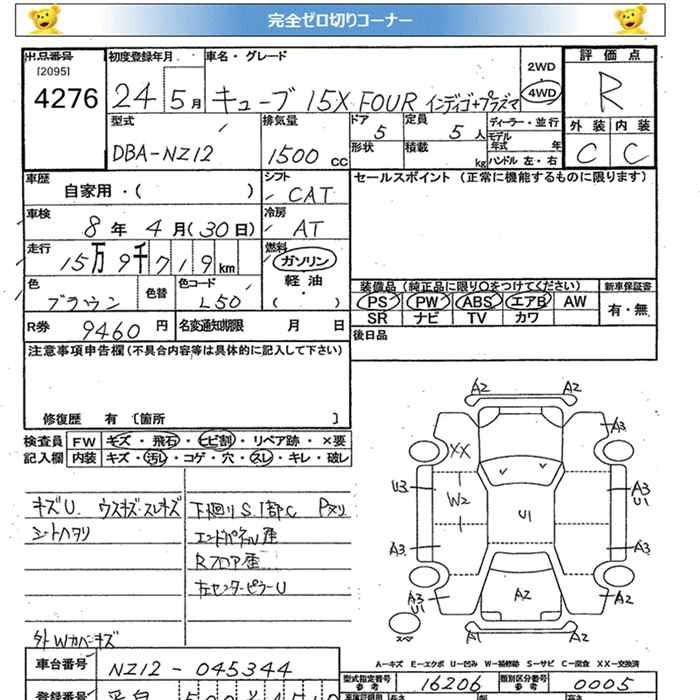 完全ゼロ切りコーナー
出品番号 初度登録年月 車名・グレード 評価点
[2095]
4276 24 5月 キューブ 15X FOUR インディゴ+プラズマ 2WD 4WD R
型式 排気量 ドア 定員 ディーラー・並行 外装 内装
DBA-NZ12 1500cc 5 5人 モデル年式 年 C C
形状 積載 kg ハンドル 左・右
車歴 シフト セールスポイント (正常に機能するものに限ります)
自家用・( ) CAT
車検 冷房
8年 4月(30日) AT
走行 燃料
15万9千719km ガソリン
軽油
色 色替 色コード ( ) 装備品 (純正品に限り○をつけてください) 新車保証書
ブラウン L50 PS PW ABS エアB AW 有・無
SR ナビ TV カワ
R券 9460円 名変通知期限 月 日 後日品
注意事項申告欄(不具合内容等は具体的に記入して下さい)
修復歴 有 [箇所 ]
検査員 FW キズ・飛石・ヒビ割・リペア跡・×要
記入欄 内装 キズ・汚レ・コゲ・穴・スレ・キレ・破レ
キズU. ウスキズ・スレキズ 下廻りS.1部C Pヌリ
シートヘタリ エンドパネル歪
Rフロア歪
左センターピラーU
外Wカバーキズ
A2 A2
XX A3
U3 W2 U1 A3
U1
A3 A3
A3 A2 A2
U1
A1 A2
A−キズ E−エクボ U−凹み W−補修跡 S−サビ C−腐食 XX−交換済
車台番号 NZ12-045344 型式指定番号 参考 16206 類別区分番号 参考 0005
登録番号